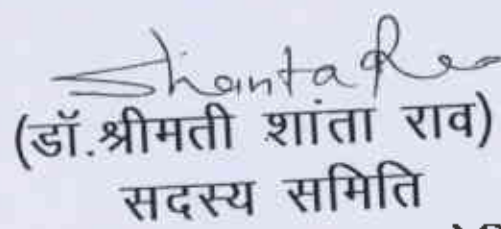 Shanta Rao
(डॉ.श्रीमती शांता राव)
सदस्य समिति